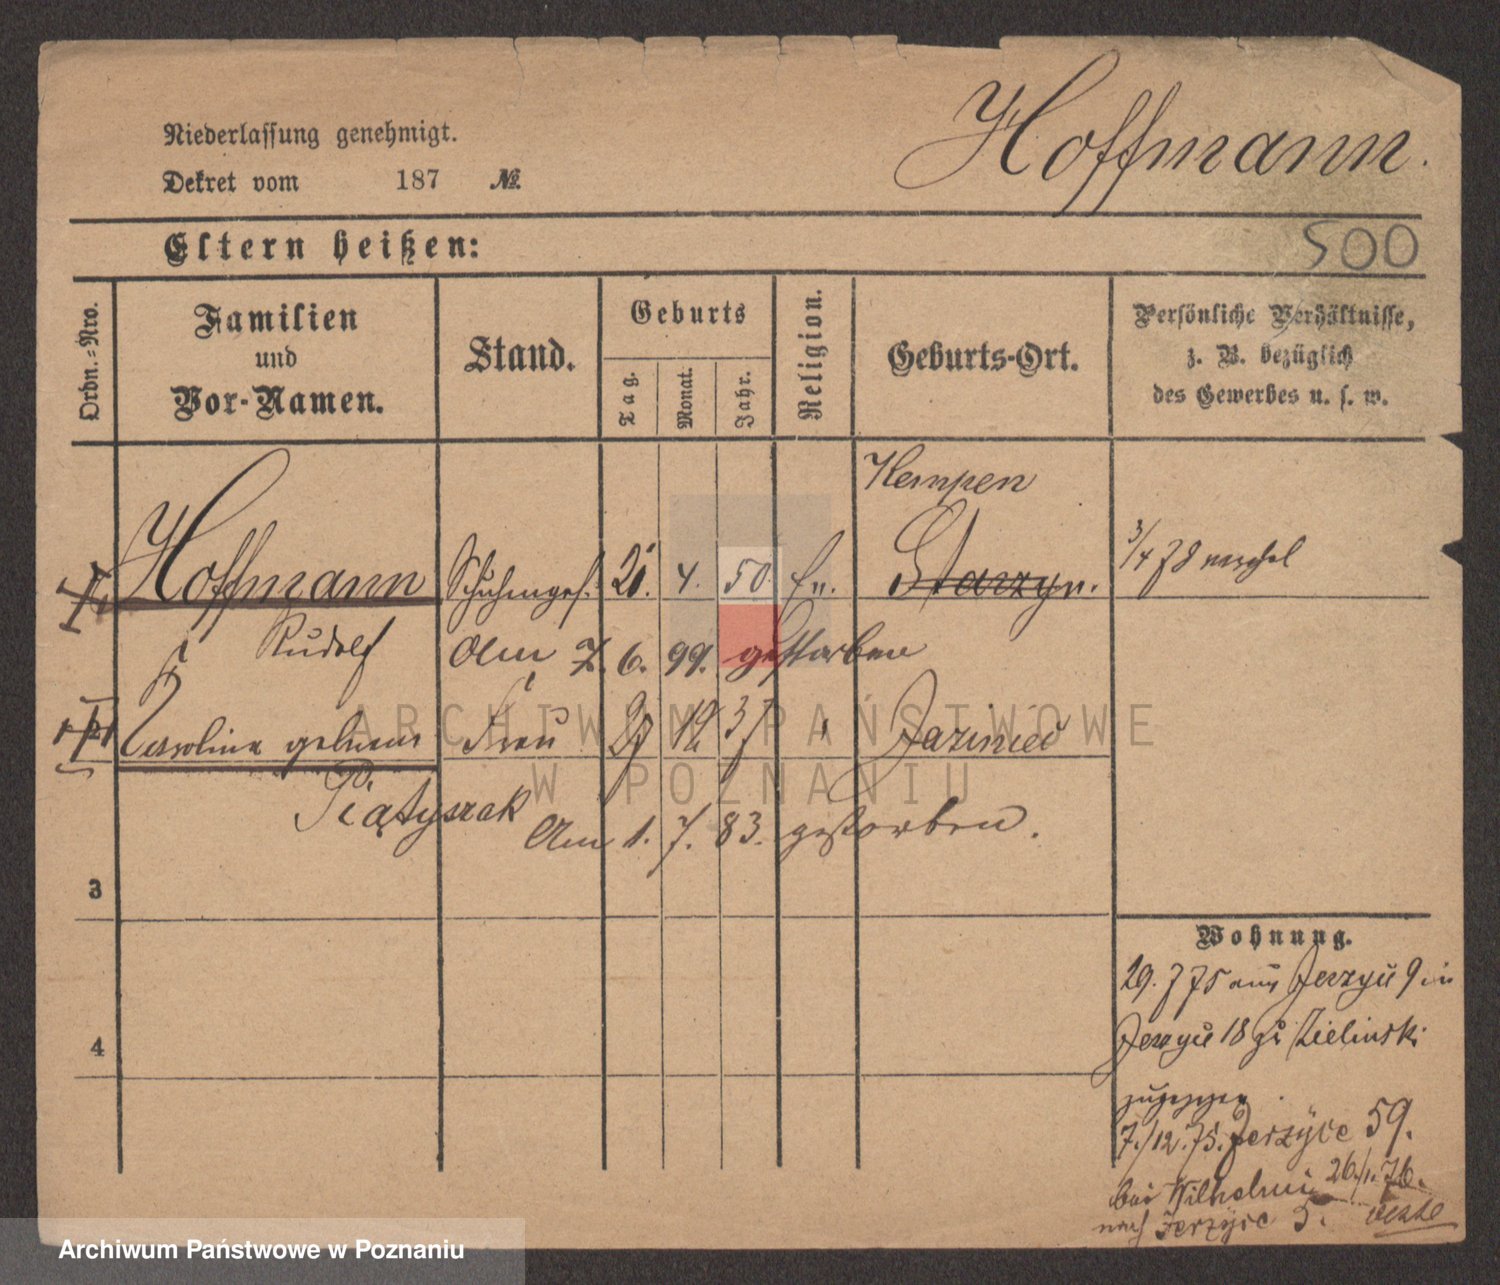 Hoffmann.
Niederlassung genehmigt.
Dekret vom 187 №.
500
Eltern heißen:
Ordn.=Nro.
Familien
und
Vor-Namen.
Stand.
Geburts
Tag.
Monat.
Jahr.
Religion.
Geburts-Ort.
Persönliche Verhältnisse,
z. B. bezüglich
des Gewerbes u. s. w.
Kempen
Hoffmann Schuhmges. 4. 50. Starzyn. 3/4 78
Rudolf Am 7. 6. 99. gestorben
Caroline geborene Frau 12 37
Piątyszak
Am 1. 7. 83. gestorben.
3
4
Wohnung.
29. 7 75 aus Jerzyce 9 in
Jerzyce 18 zu Zielinski
zugezogen
7./12. 75. Jerzyce 59.
bei Wilhelmi 26./1. 76.
nach Jerzyce 5.
ARCHIWUM PAŃSTWOWE
W POZNANIU
Archiwum Państwowe w Poznaniu